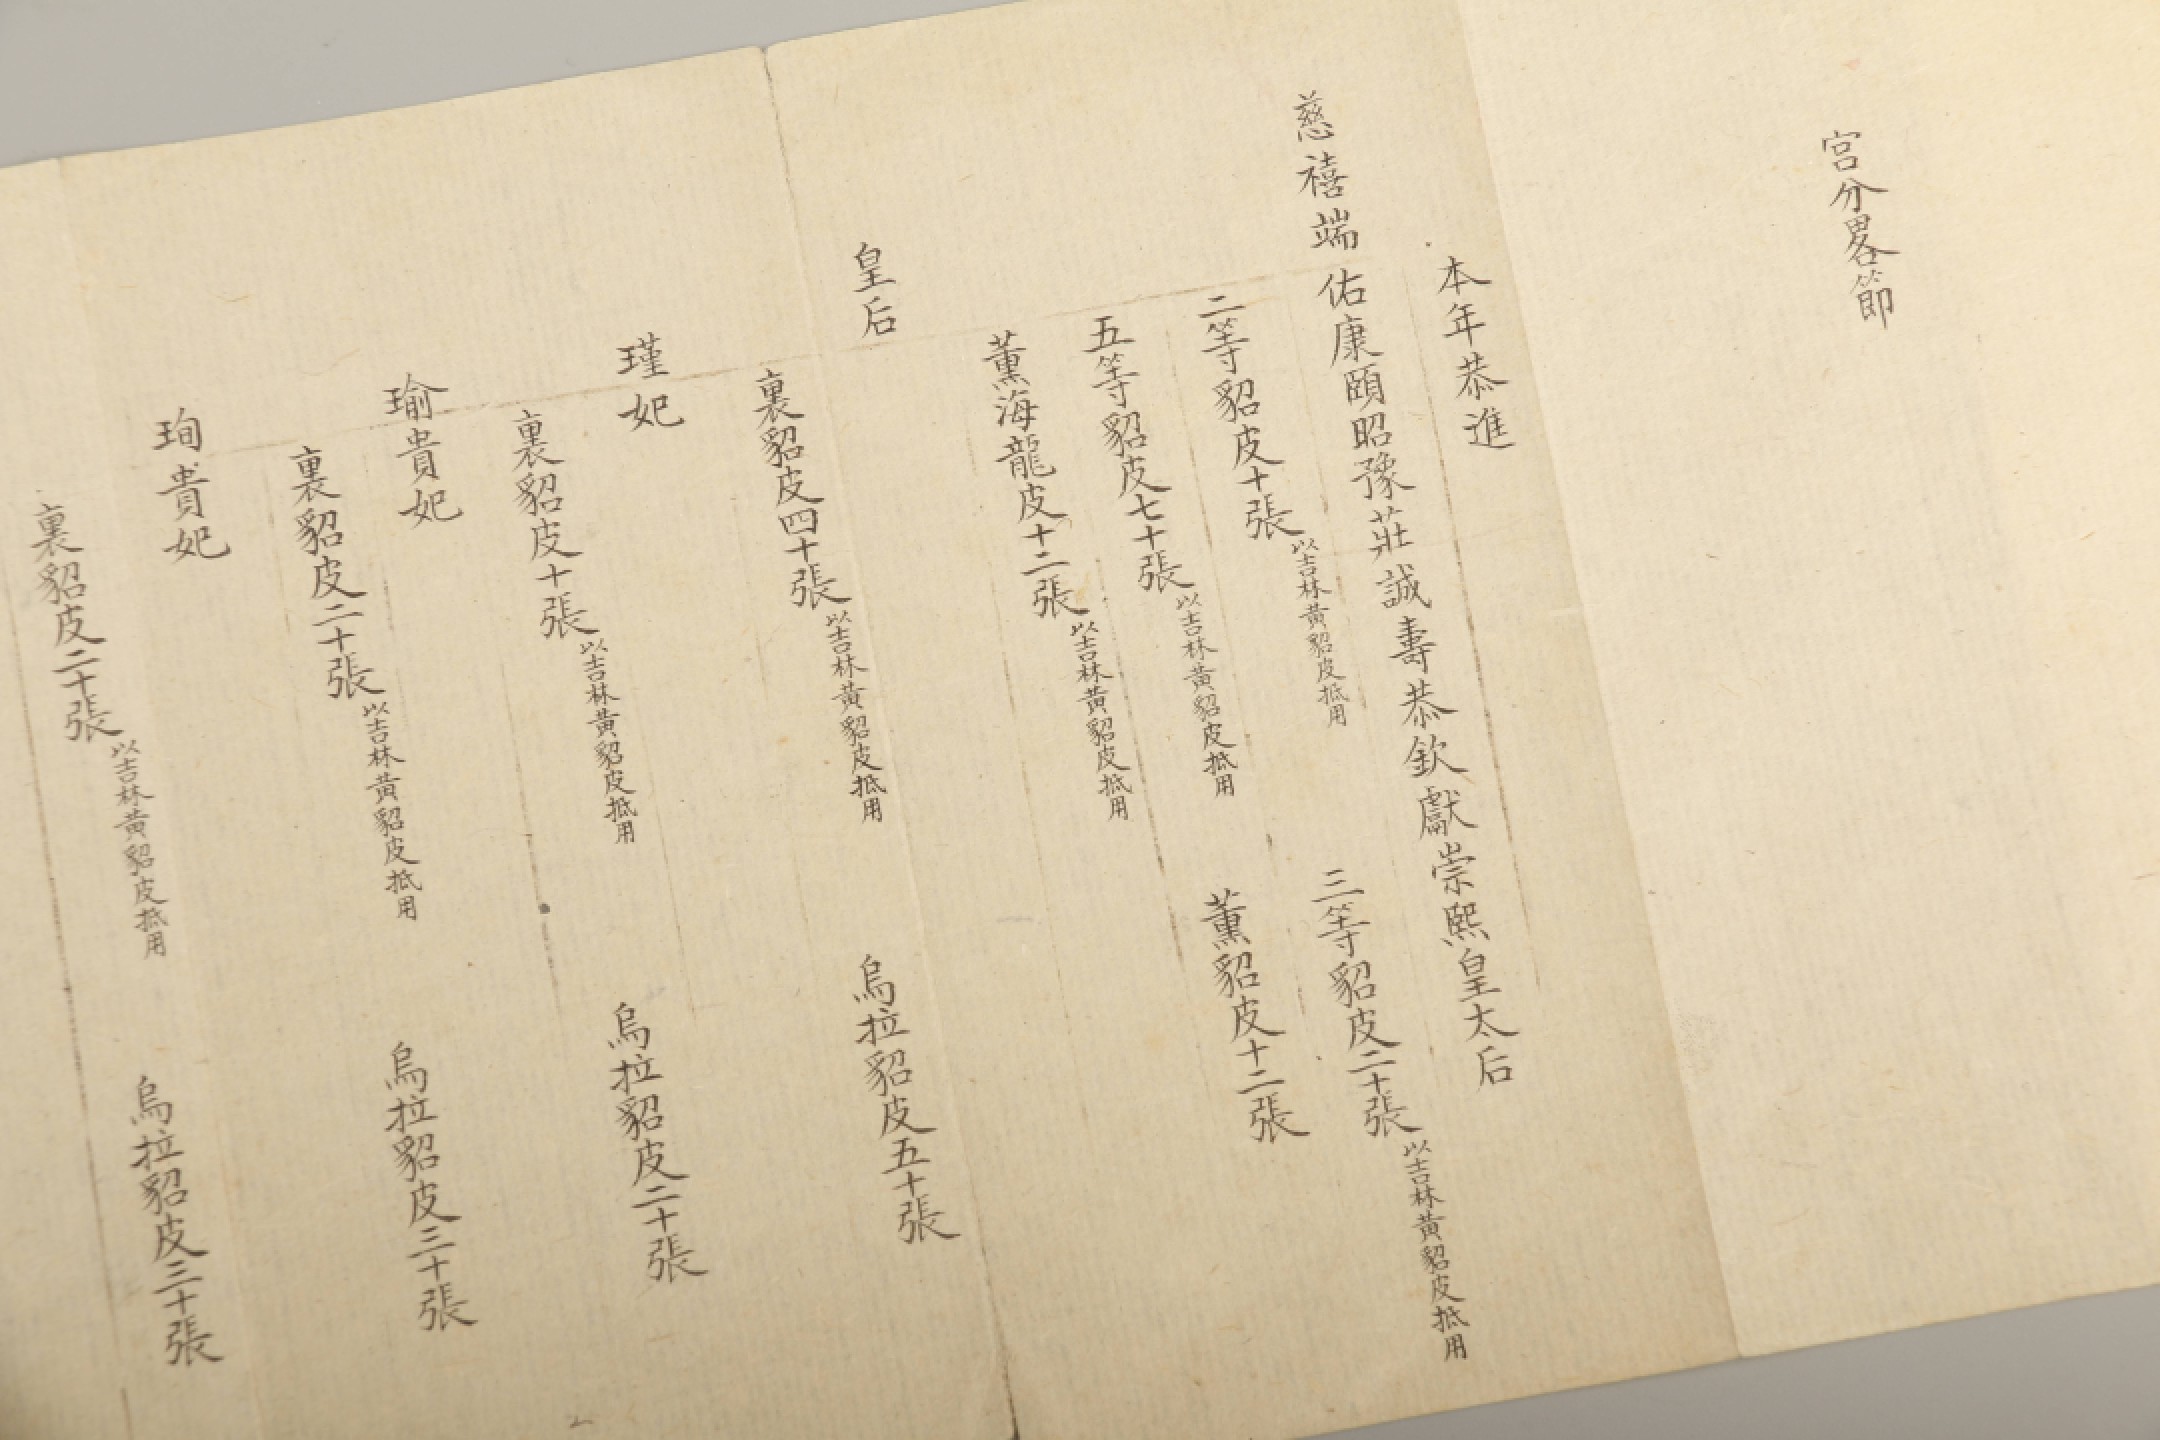 宮分畧節
本年恭進
慈禧端佑康頤昭豫莊誠壽恭欽獻崇熙皇太后
二等貂皮十張以吉林黃貂皮抵用
三等貂皮二十張以吉林黃貂皮抵用
五等貂皮七十張以吉林黃貂皮抵用
薰貂皮十二張
薰海龍皮十二張以吉林黃貂皮抵用
皇后
裏貂皮四十張以吉林黃貂皮抵用
烏拉貂皮五十張
瑾妃
裏貂皮十張以吉林黃貂皮抵用
烏拉貂皮二十張
瑜貴妃
裏貂皮二十張以吉林黃貂皮抵用
烏拉貂皮三十張
珣貴妃
裏貂皮二十張以吉林黃貂皮抵用
烏拉貂皮三十張